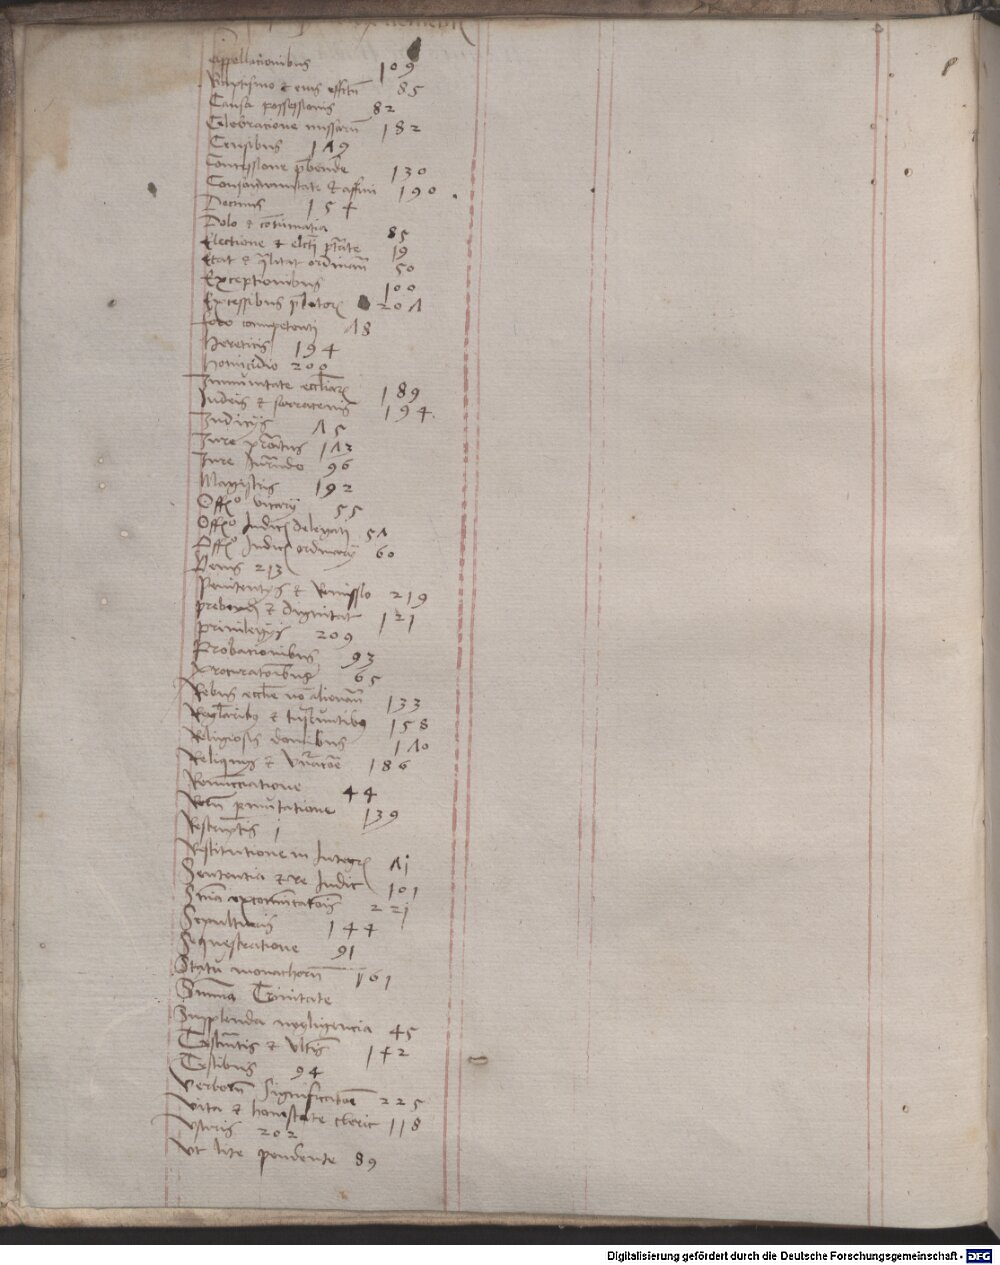 Appellationibus 109
Baptismo & eius effectu 85
Causa possessionis 82
Celebratione missarũ 182
Censibus 149
Concessione p̃bende 130
Consanguinitate & affini 190
Decimis 154
Dolo & cõtumatia 85
Electione & elcti p̃tate 19
Etat & q̃litat ordinan 50
Exceptionibus 100
Excessibus p̃lator 201
foro competenti 18
Hereticis 194
Homicidio 200
Immunitate eccliar 189
Iudeis & sarracenis 194
Iudicijs 15
Iure patronatus 143
Iure Iurando 96
Magistris 192
Offo vicarij 55
Offo Iudic delegati 51
Offo Iudic ordinarij 60
Penis 213
Penitentijs & Remissio 219
prebend & dignitat 121
priuilegijs 209
Probationibus 93
Procuratoribus 65
Rebus ecclie nõ alienan 133
Regularibus & transeuntibus 158
Religiosis domibus 170
Reliquijs & 186
Renunciatione 44
Rerũ permutatione 139
Rescriptis i
Restitutione in Integr
Sententia & re Iudic 101
Snĩa excommunicationis 221
Sepulturis 144
Sequestratione 91
Statu monachorũ 161
Summa Trinitate
Supplenda negligencia 45
Testamentis & vltis 142
Testibus 94
Verborũ Significatione 225
Vita & honestate cleric 118
Vsuris 202
Vt lite pendente 89
Digitalisierung gefördert durch die Deutsche Forschungsgemeinschaft - DFG